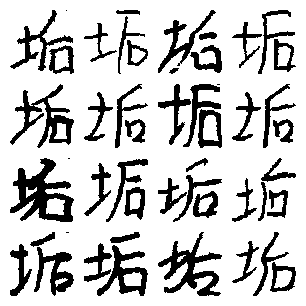 垢垢垢垢
垢垢垢垢
垢垢垢垢
垢垢垢垢